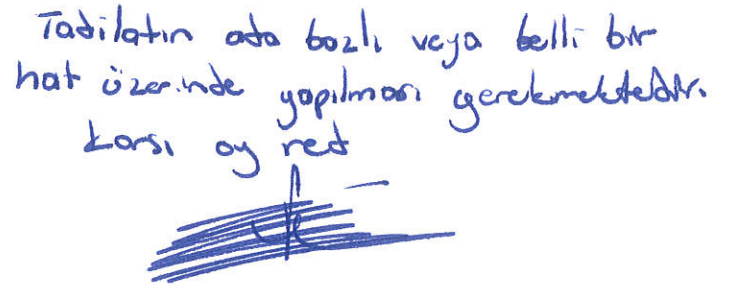 Tadilatın ada bazlı veya belli bir
hat üzerinde yapılması gerekmektedir.
Karşı oy red